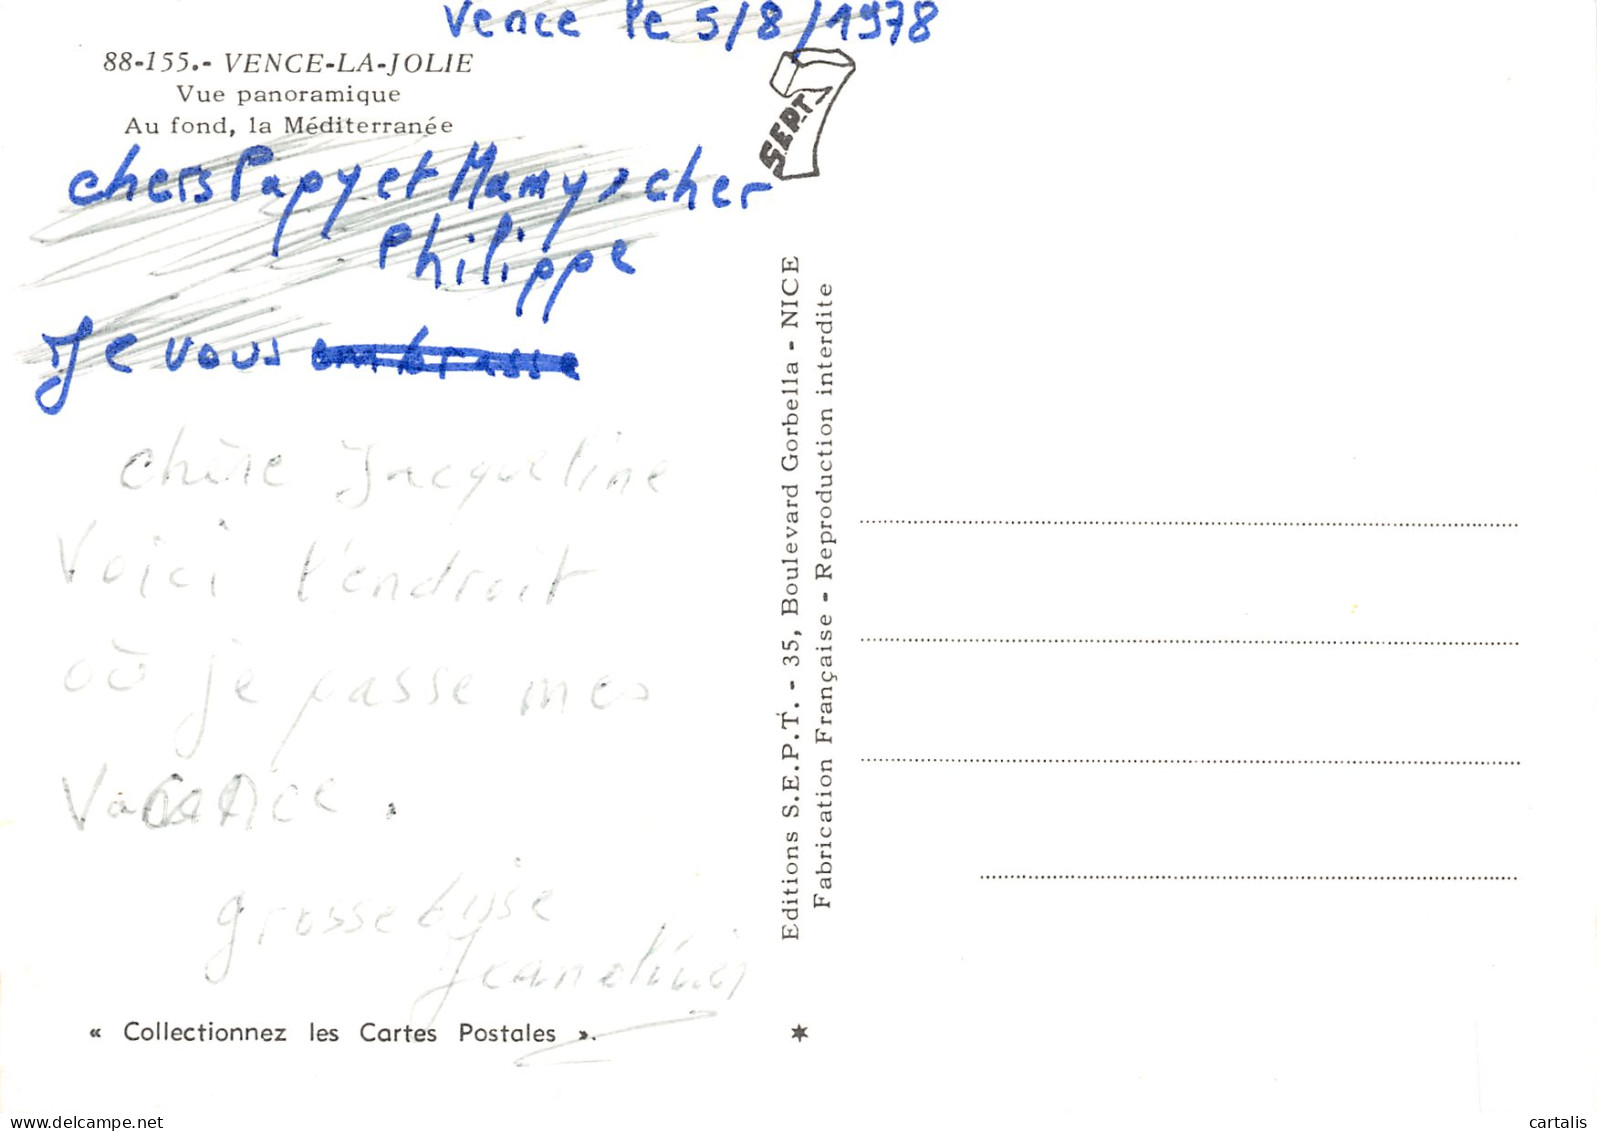 Vence le 5/8/1978
88-155.- VENCE-LA-JOLIE
Vue panoramique
Au fond, la Méditerranée
S.E.P.T.
chers Papy et Mamy, cher
Philippe
Je vous embrasse
chère Jacqueline
Voici l'endroit
où je passe mes
Vacance.
grosse byse
Jeanolivier
« Collectionnez les Cartes Postales ».
Editions S.E.P.T. - 35, Boulevard Gorbella - NICE
Fabrication Française - Reproduction interdite
delcampe.net
cartalis